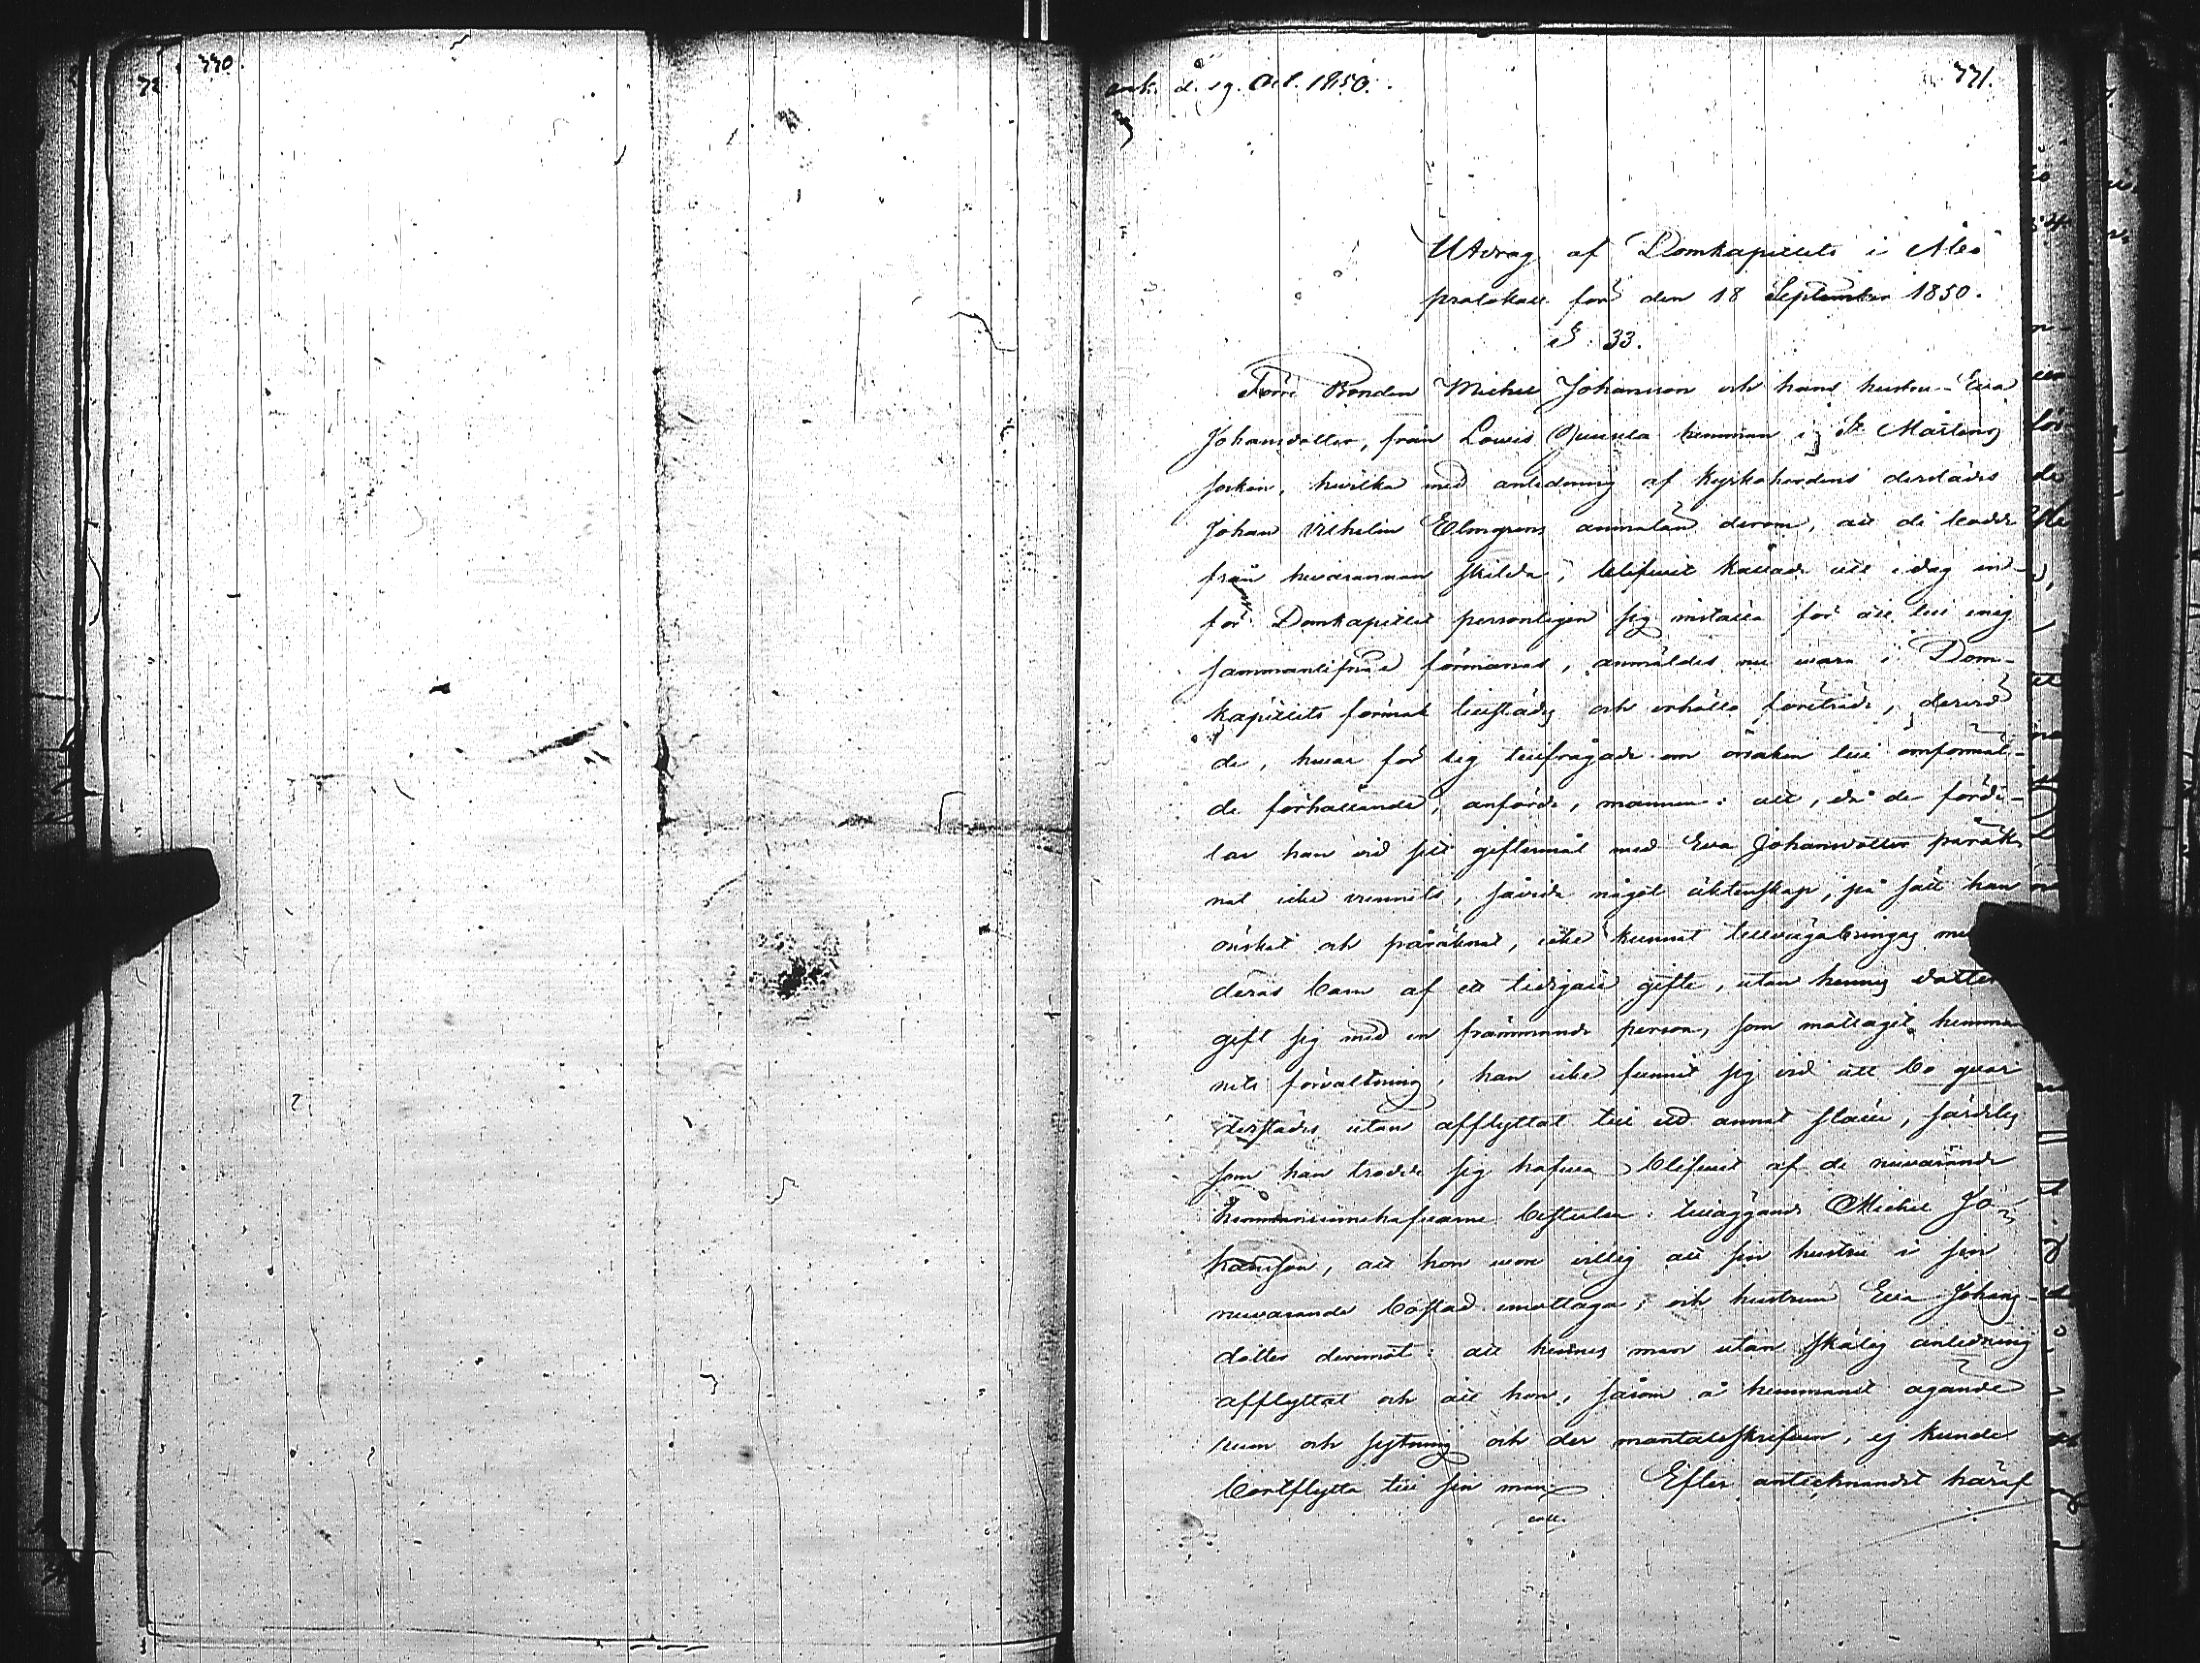 770.
72
ank. d. 19. Oct. 1850.
771.
Utdrag af Domkapitlets i Åbo
protokoll för den 18 September 1850.
§ 33.
Förre Bonden Michel Johansson och hans hustru Eva
Johansdotter, från Louis hemman i St Mårtens
socken, hvilka med anledning af Kyrkoherdens derstädes
Johan Vilhelm Elmgrens anmälan derom, att de lefde
från hvarannan skilda, blifvit kallade att i dag in-
för Domkapitlet personligen sig inställa för att till enig
sammanlefnad förmanas, anmäldes nu vara i Dom-
kapitlets förmak tillstädes och erhöllo företräde, dervid
de, hvar för sig tillfrågade om orsaken till omförmäl-
de förhållande, anförde, mannen: att, då de förde-
lar han vid sitt giftermål med Eva Johansdotter påräk-
nat icke vunnits, såvida något äktenskap, på sätt han
önskat och påräknat, icke kunnat tillvägabringas
deras barn af ett tidigare gifte, utan hennes dotter
gift sig med en främmande person, som mottagit hemma
nets förvaltning, han icke funnit sig vid att bo qvar
derstädes utan afflyttat till ett annat ställe, särdeles
som han trodde sig hafva blifvit af de nuvarande
hemmansinnehafvarne tilläggande Michel Jo-
hansson, att han vore villig att sin hustru i sin
nuvarande bostad emottaga; och hustrun Eva Johans-
dotter deremot: att hennes man utan skälig anledning
afflyttat och att hon, såsom å hemmanet ägande
rum och sytning och der mantalsskrifven, ej kunde
bortflytta till sin man. Efter antecknandet häraf